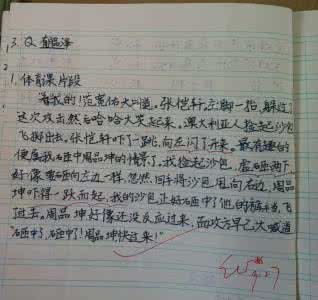 3. Q 看温泽
1. 体育课片段
看我的!范宽佑大叫道。张恺轩左脚一抬,躲过了
这次攻击然后哈哈大笑起来。澳大利亚人捡起沙包
飞掷出去。张恺轩吓了一跳,向左闪了开来。最有趣的
便属我砸中周品坤的情景了。我捡起沙包,虚砸两下
好像要砸向左边一样。忽然,回手将沙包甩向右边。周品
坤吓得一跃而起,我的沙包正好砸中了他的裤
过去。周品坤好像还没反应过来,而攻方早已大喊道
“砸中了,砸中了!周品坤快过来!”
9.27